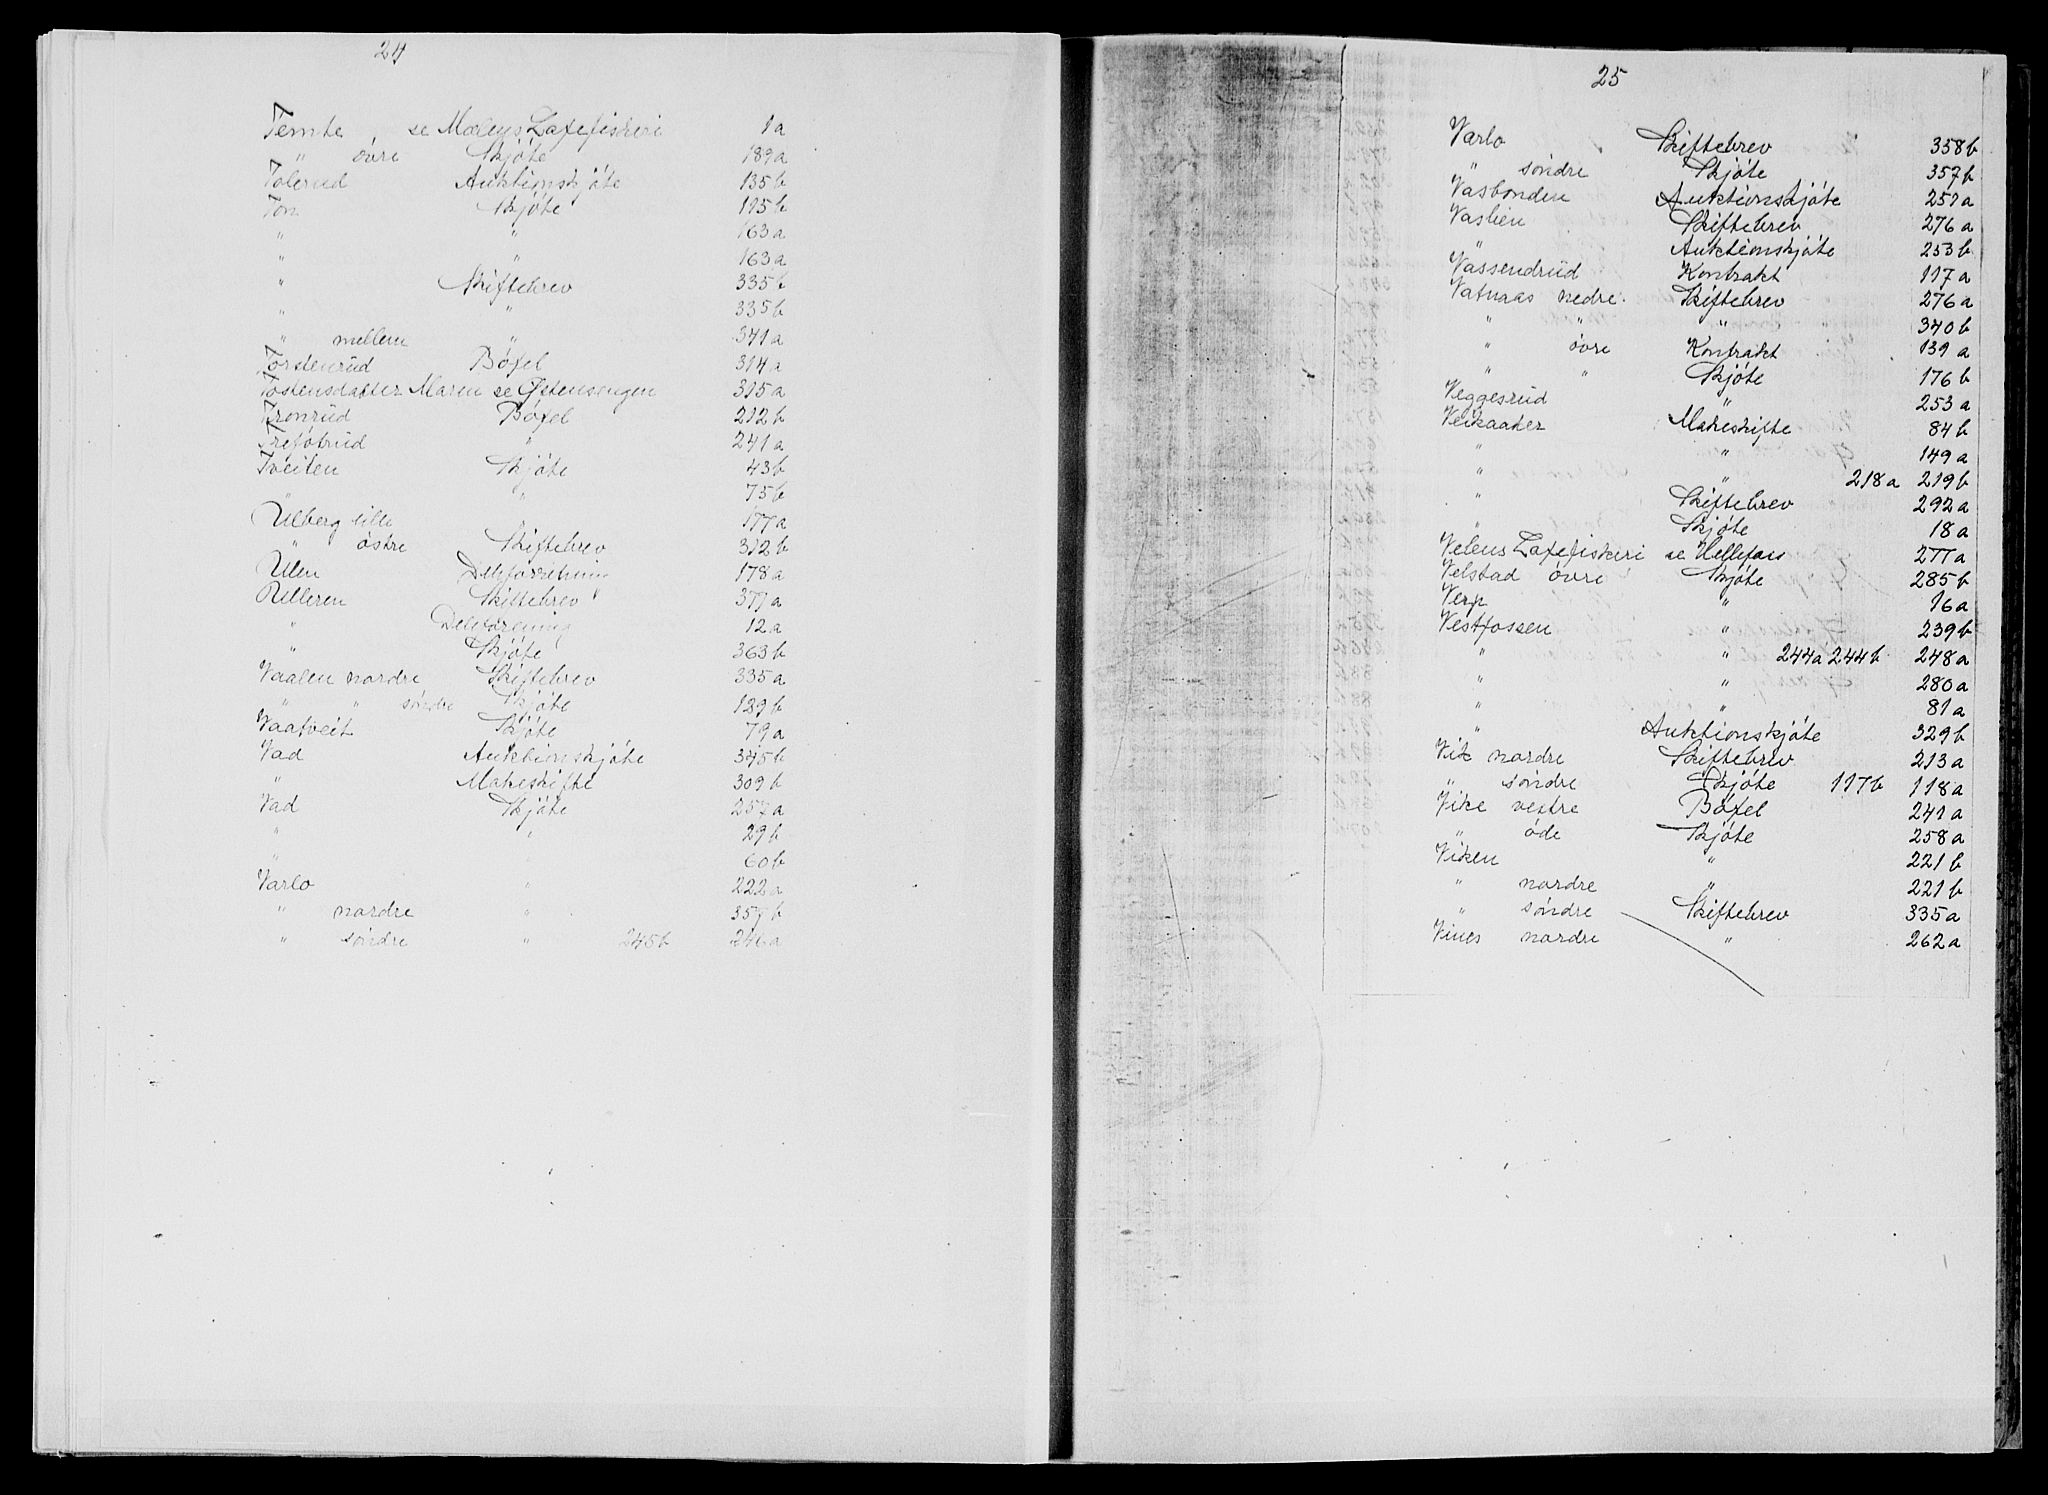 24
Temte, se Moleys Laxefiskeri 1a
" övre Skjöte 189a
Tolerud Auktionskjöte 135b
Ton Skjöte 195b
" " 163a
" " 163a
" Skiftebrev 335b
" " 335b
" mellem " 341a
Torstenrud Böxel 314a
Tostensdatter Maren se Östensengen 315a
Tronrud Böxel 212b
" 241a
Tveiten Skjöte 43b
" " 75b
Ulberg lille 177a
" östre Skiftebrev 312b
Ulen Deleforretning 178a
Ulleren Skiftebrev 377a
" 12a
" Skjöte 363b
Vaalen nordre Skiftebrev 335a
" " söndre Skjöte 129b
Vaatveit Skjöte 79a
Vad Auktionskjöte 345b
" Makeskifte 309b
Vad Skjöte 257a
" " 29b
" 60b
Varlo " 222a
" nordre " 357b
" söndre " 245b 246a
25
Varlo Skiftebrev 358b
" söndre Skjöte 357b
Vasbonden Auktionskjöte 251a
Vaslien Skiftebrev 276a
" Auktionskjöte 253b
Vassendrud Kontrakt 117a
Vatnaas nedre Skiftebrev 276a
" " " 340b
" övre Kontrakt 139a
" " Skjöte 176b
Veggesrud " 253a
Veikaaker Makeskifte 84b
" " 149a
" " 218a 219b
" Skiftebrev 292a
" Skjöte 18a
Velens Laxefiskeri se Hellefoss 277a
Velstad övre Skjöte 285b
Verp " 16a
Vestfossen " 239b
" " 244a 244b 248a
" " 280a
" " 81a
" Auktionskjöte 329b
Vik nordre Skiftebrev 213a
" söndre Skjöte 117b 118a
Vike vestre Böxel 241a
" öde Skjöte 258a
Viken " 221b
" nordre " 221b
" söndre Skiftebrev 335a
Vines nordre " 262a